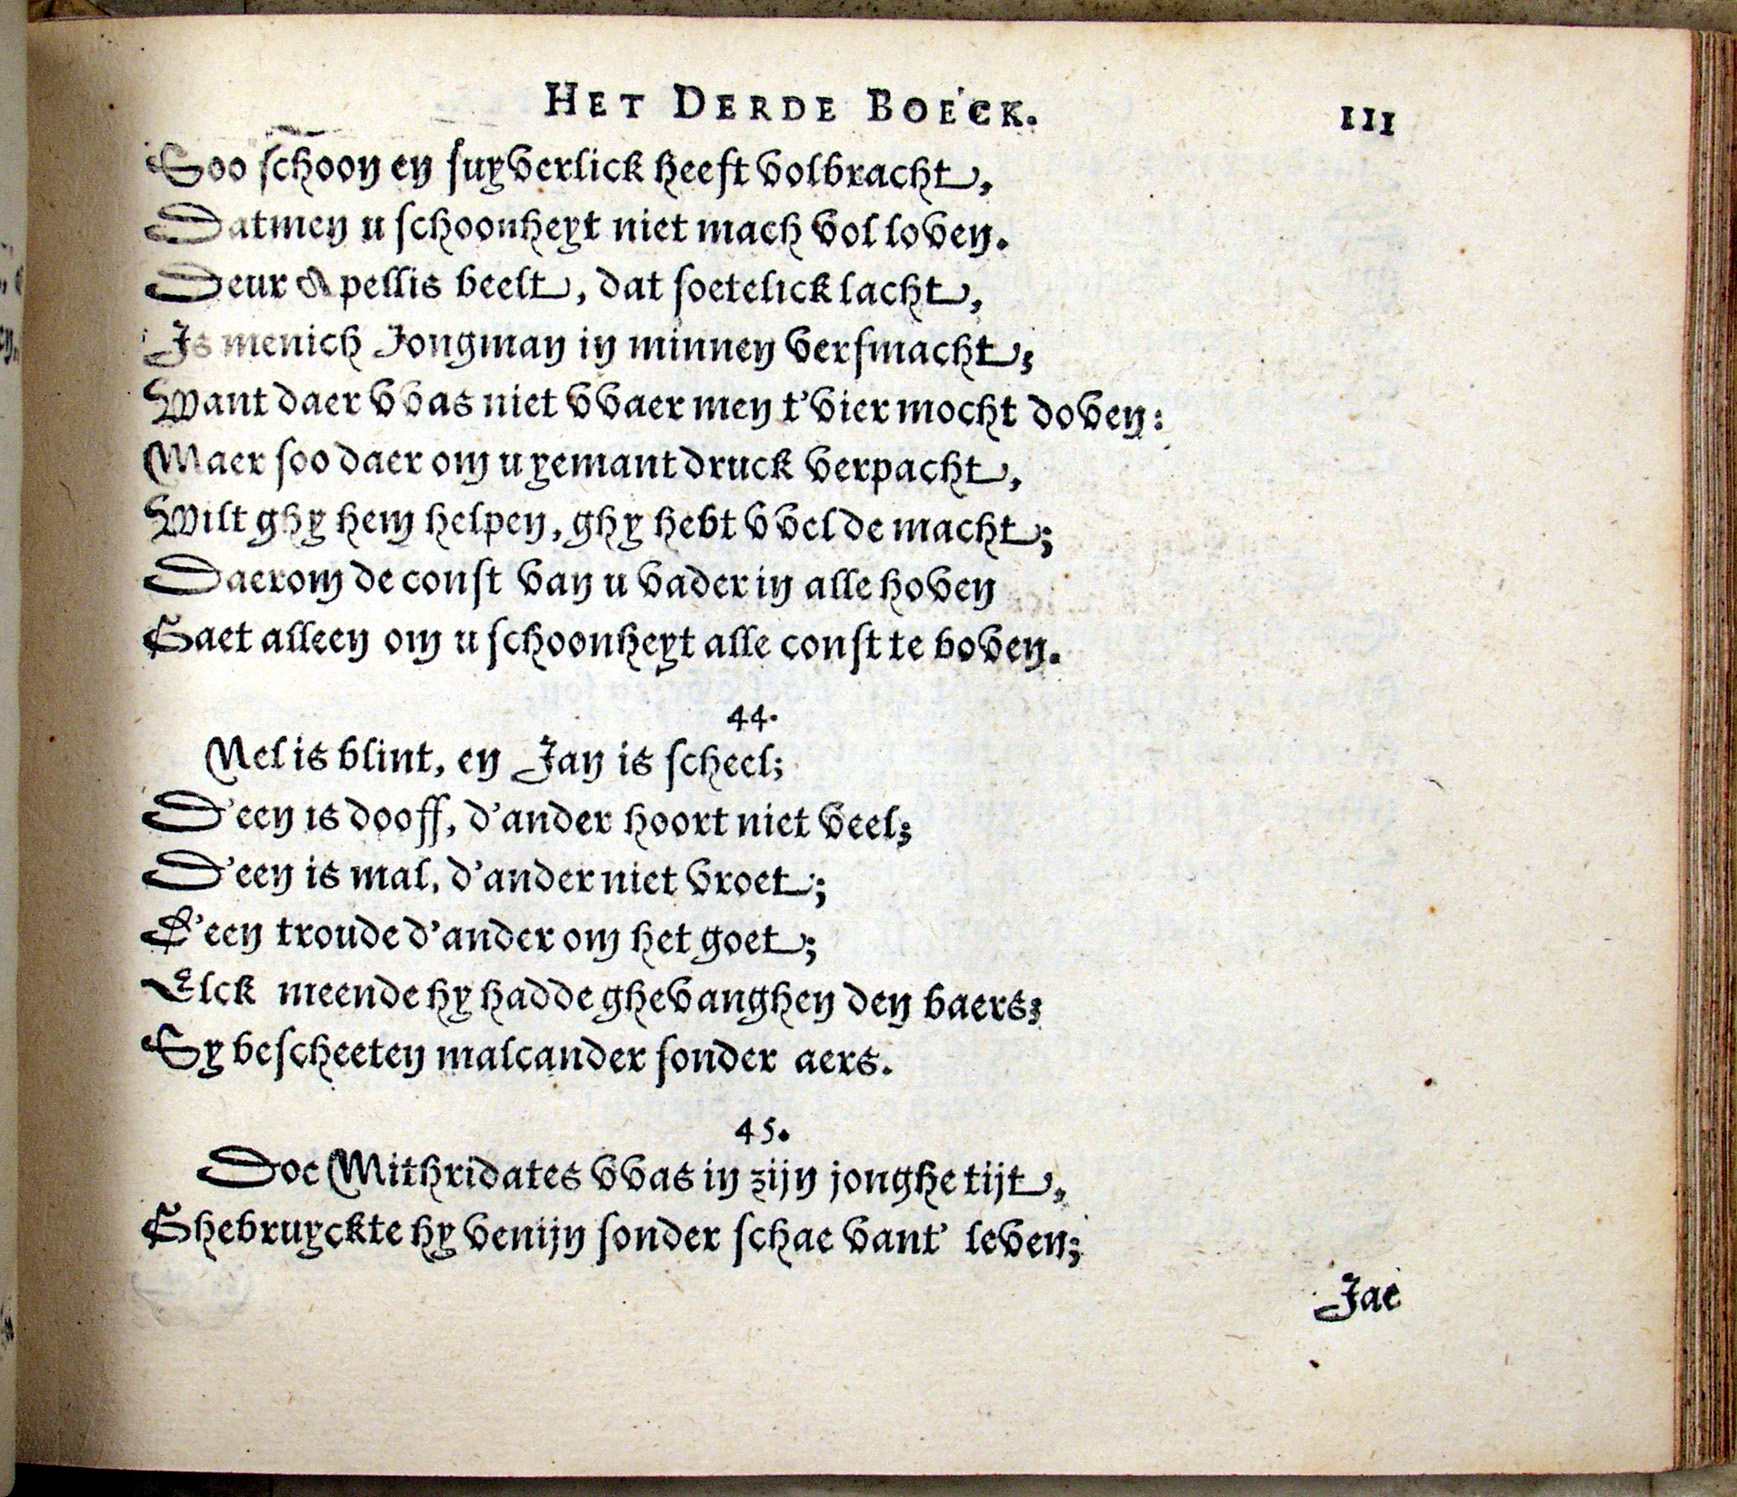 HET DERDE BOECK. 111
Soo schoon en suyverlick heeft volbracht,
Datmen u schoonheyt niet mach vol loven.
Deur Apellis beelt, dat soetelick lacht,
Is menich Jongman in minnen versmacht;
Want daer vvas niet vvaer men t'vier mocht doven:
Maer soo daer om u yemant druck verpacht,
Wilt ghy hem helpen, ghy hebt vvel de macht;
Daerom de const van u vader in alle hoven
Gaet alleen om u schoonheyt alle const te boven.
44.
Nel is blint, en Jan is scheel;
D'een is dooff, d'ander hoort niet veel;
D'een is mal, d'ander niet vroet;
D'een troude d'ander om het goet;
Elck meende hy hadde ghevanghen den baers;
Sy bescheeten malcander sonder aers.
45.
Doe Mithridates vvas in zijn jonghe tijt,
Ghebruyckte hy venijn sonder schae vant' leven;
Jae